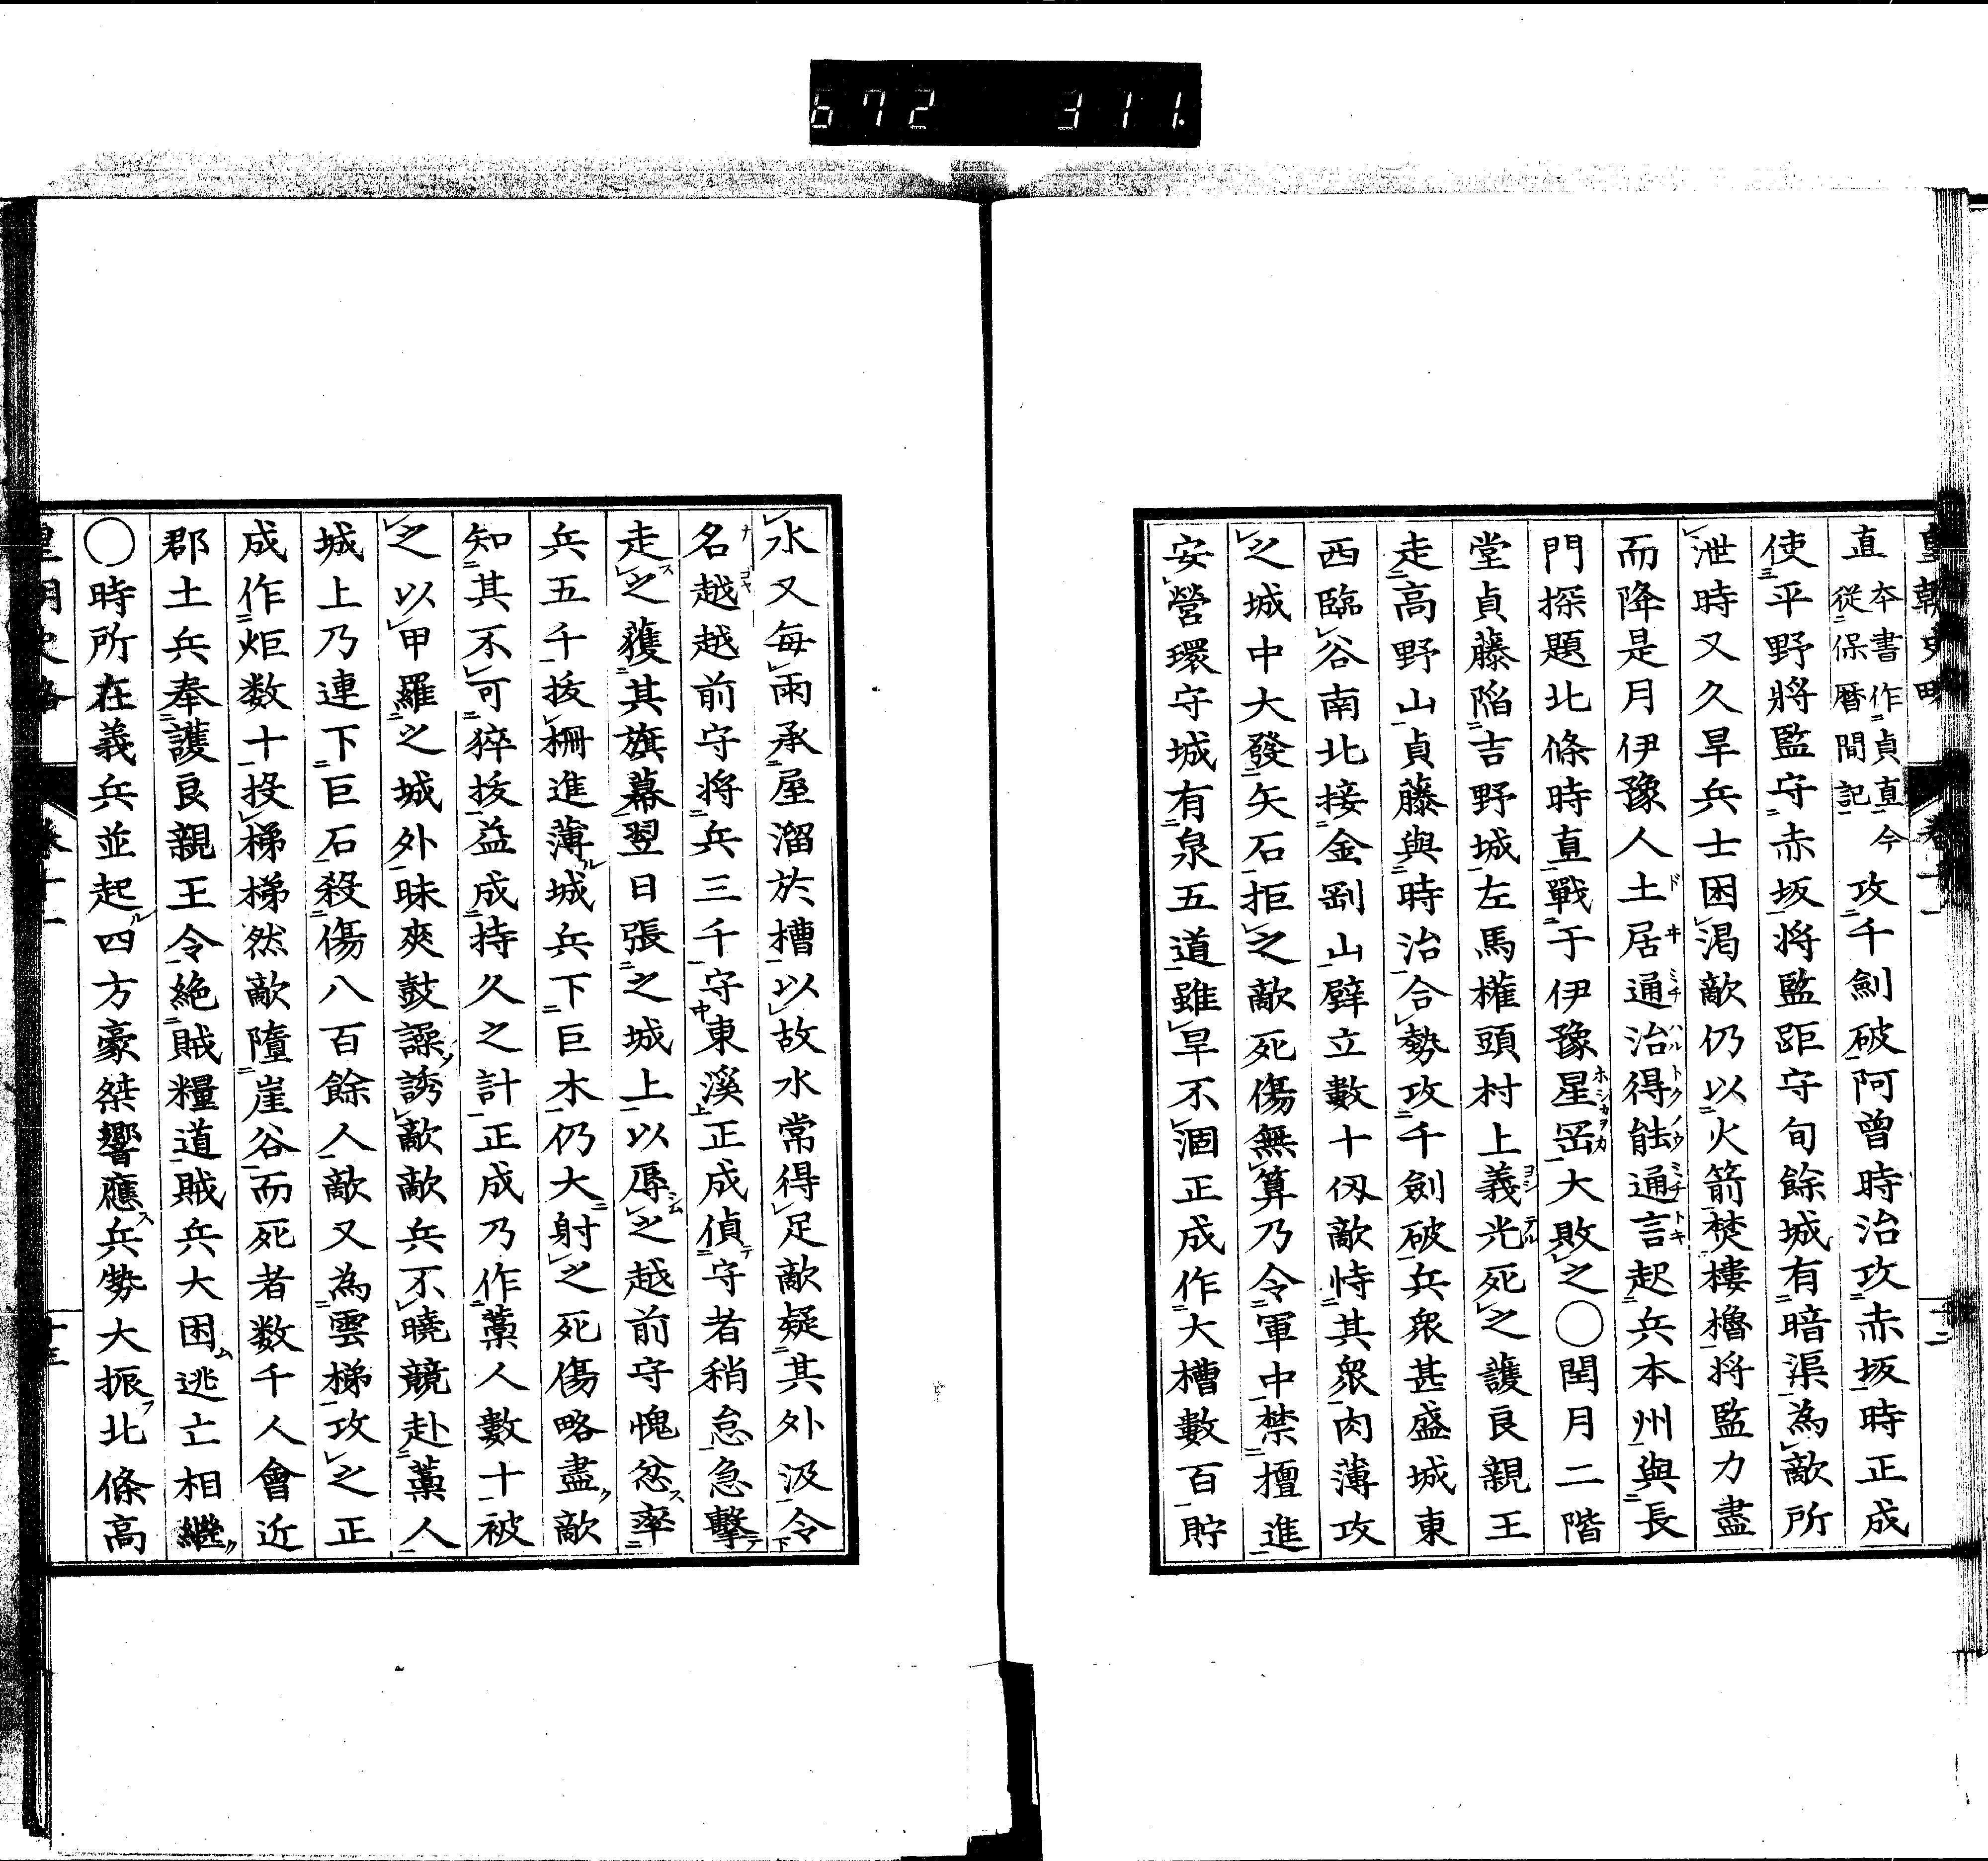 672 311.
皇朝史略 卷十一 十二
直 本書作貞直今從保暦間記 攻千劍破阿曾時治攻赤坂時正成
使平野將監守赤坂将監距守旬餘城有暗渠為敵所
泄時又久旱兵士困渇敵仍以火箭焚樓櫓将監力盡
而降是月伊豫人土居通治得能通言起兵本州與長
門探題北條時直戰于伊豫星岡大敗之〇閏月二階
堂貞藤陷吉野城左馬權頭村上義光死之護良親王
走高野山貞藤與時治合勢攻千劍破兵眾甚盛城東
西臨谷南北接金剛山壁立數十仭敵恃其眾肉薄攻
之城中大發矢石拒之敵死傷無算乃令軍中禁擅進
安營環守城有泉五道雖旱不涸正成作大槽數百貯
水又每雨承屋溜於槽以故水常得足敵疑其外汲令
名越越前守将兵三千守東溪正成偵守者稍怠急擊
走之獲其旗幕翌日張之城上以辱之越前守愧忿率
兵五千抜柵進薄城兵下巨木仍大射之死傷略盡敵
知其不可猝抜益成持久之計正成乃作藁人數十被
之以甲羅之城外昧爽鼓譟誘敵敵兵不曉競赴藁人
城上乃連下巨石殺傷八百餘人敵又為雲梯攻之正
成作炬数十投梯梯然敵墮崖谷而死者数千人會近
郡土兵奉護良親王令絶賊糧道賊兵大困逃亡相繼
〇時所在義兵並起四方豪桀響應兵勢大振北條高
皇朝史略 卷十一 十三